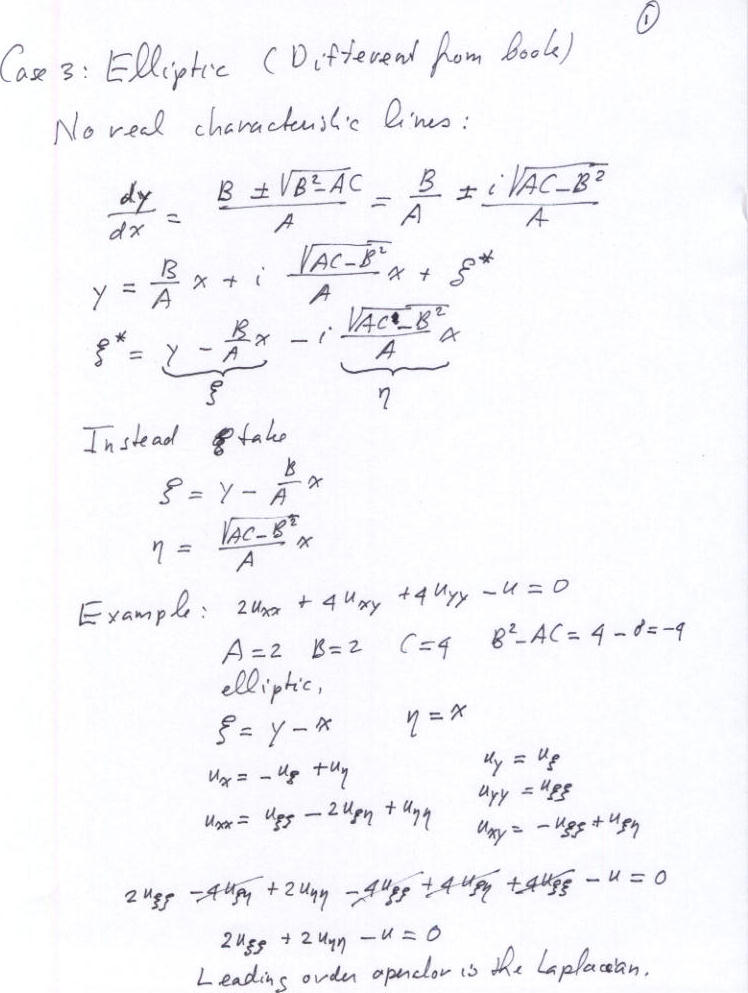 ①
Case 3: Elliptic (Different from book)
No real characteristic lines:
dy/dx = (B ± √(B²-AC))/A = B/A ± i√(AC-B²)/A
y = B/A x + i √(AC-B²)/A x + ξ*
ξ* = y - B/A x - i √(AC-B²)/A x
ξ η
Instead take
ξ = y - B/A x
η = √(AC-B²)/A x
Example: 2u_xx + 4u_xy + 4u_yy - u = 0
A=2 B=2 C=4 B²-AC = 4-8=-4
elliptic,
ξ = y-x η = x
u_x = -u_ξ + u_η u_y = u_ξ
u_yy = u_ξξ
u_xx = u_ξξ - 2u_ξη + u_ηη u_xy = -u_ξξ + u_ξη
2u_ξξ - 4u_ξη + 2u_ηη - 4u_ξξ + 4u_ξη + 4u_ξξ - u = 0
2u_ξξ + 2u_ηη - u = 0
Leading order operator is the Laplacean.